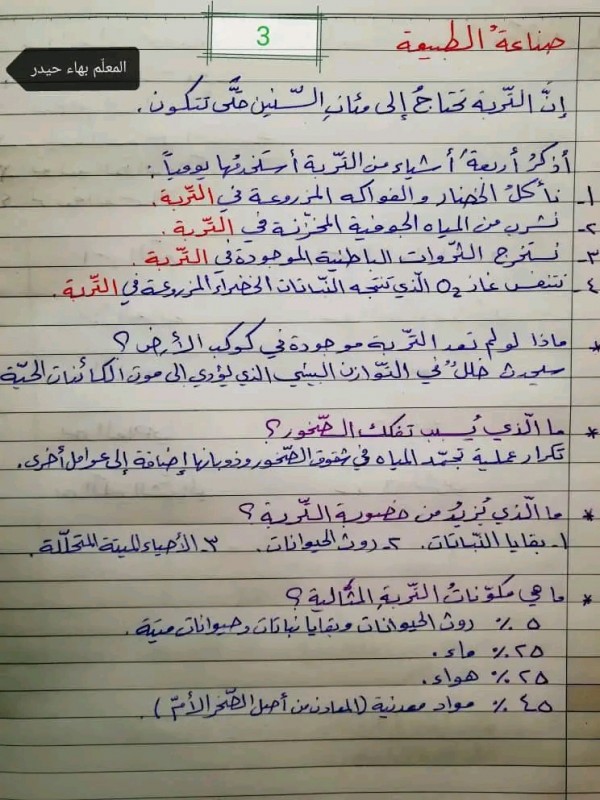 3
صناعةُ الطبيعة
المعلّم بهاء حيدر
إنَّ التّربة تحتاجُ إلى مئاتِ السّنين حتَّى تتكون.
أذكرُ أربعةَ أشياء من التّربة أستخدمُها يومياً :
١- نأكلُ الخضار و الفواكه المزروعة في التّربة.
٢- نشرب من المياه الجوفية المخزّنة في التّربة.
٣- نستخرج الثّروات الباطنية الموجودة في التّربة.
٤- نتنفس غاز O2 الّذي تنتجه النّباتات الخضراء المزروعة في التّربة.
* ماذا لو لم تعد التّربة موجودة في كوكب الأرض ؟
سيحدث خللٌ في التّوازن البيئي الذي يؤدي إلى موت الكائنات الحيّة
* ما الّذي يُسبب تفكك الصّخور؟
تكرار عملية تجمّد المياه في شقوق الصّخور وذوبانها إضافة إلى عوامل أخرى.
* ما الّذي يُزيدُ من خصوبة التّربة ؟
١- بقايا النّباتات. ٢- روث الحيوانات. ٣- الأحياء الميتة المتحلّلة.
* ما هي مكوّناتُ التّربةِ المثّالية ؟
٥ ٪ روث الحيوانات وبقايا نباتات وحيوانات ميتة.
٢٥ ٪ ماء.
٢٥ ٪ هواء.
٤٥ ٪ مواد معدنية (المعادن من أصل الصّخر الأمّ ).